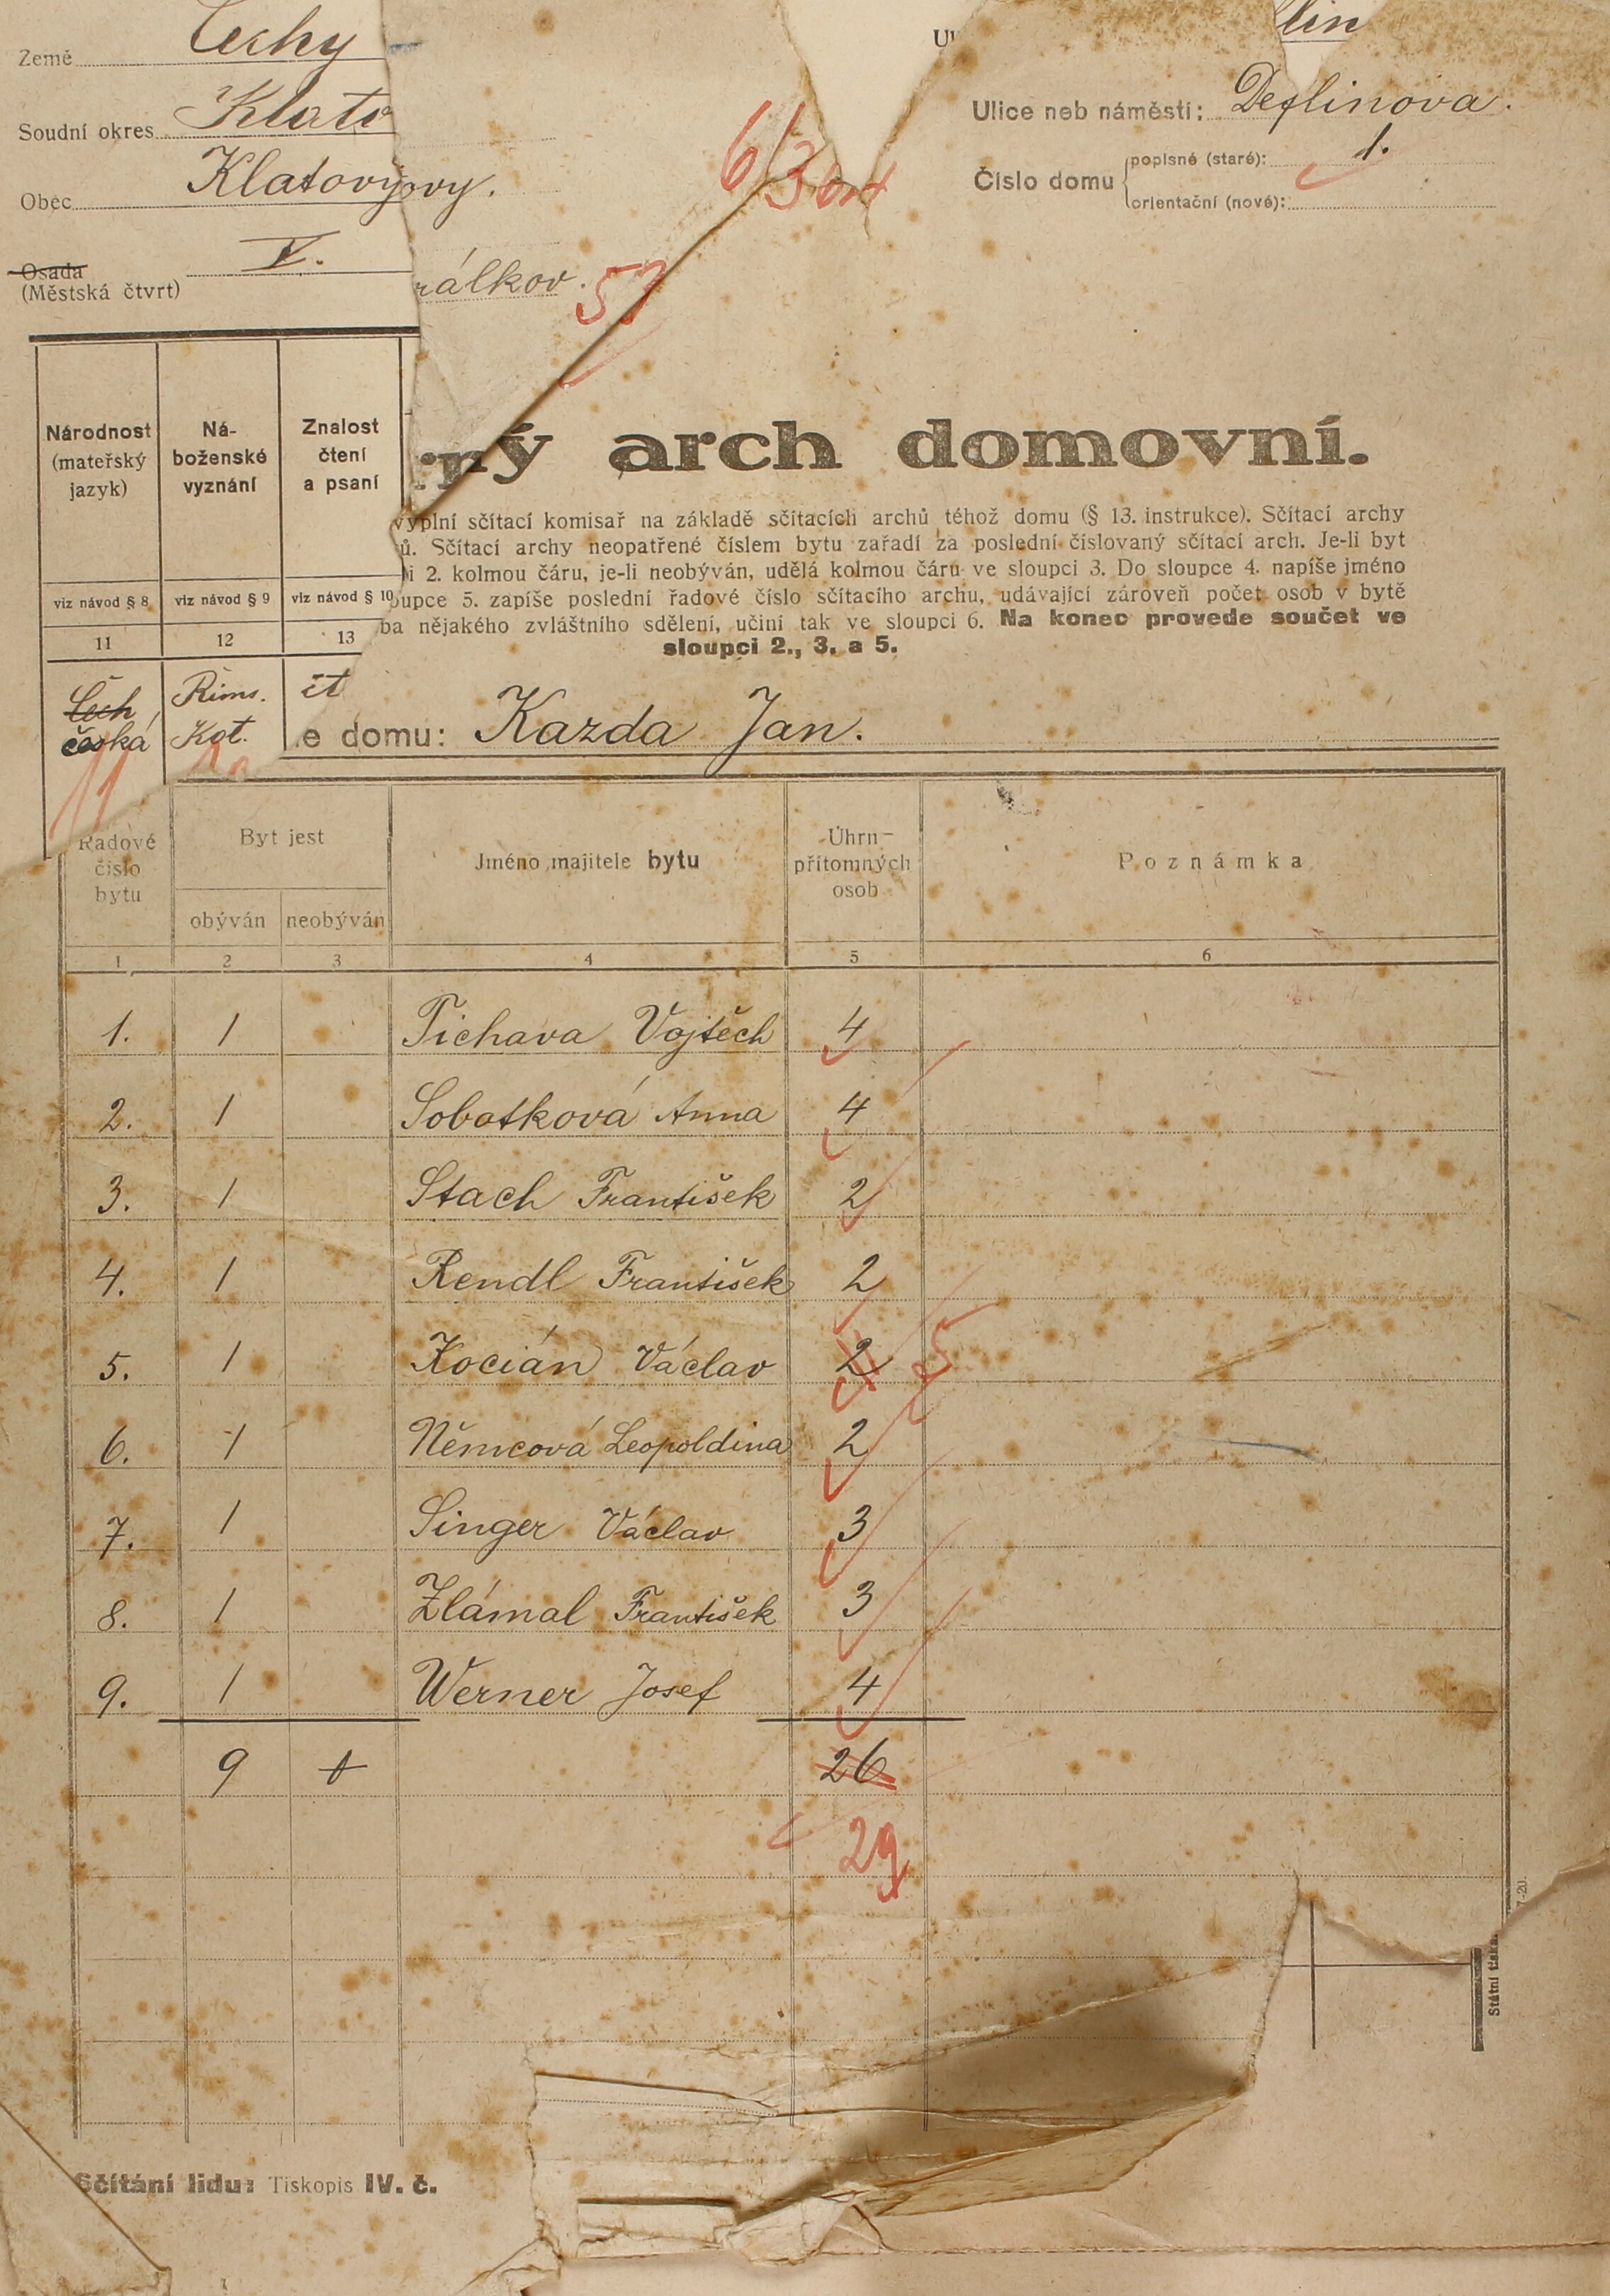 Země Čechy
Soudní okres Klato
Obec Klatovy ovy.
Osada V.
(Městská čtvrt)
rálkov. 57
lin
Ulice neb náměstí: Deylinova.
Číslo domu popisné (staré): 1.
orientační (nové):
6/3
Národnost (mateřský jazyk) Ná-boženské vyznání Znalost čtení a psaní
viz návod § 8 viz návod § 9 viz návod § 10
11 12 13
Čech Řims. čt
česká Kat.
11
rný arch domovní.
vyplní sčítací komisař na základě sčítacích archů téhož domu (§ 13. instrukce). Sčítací archy
ů. Sčítací archy neopatřené číslem bytu zařadí za poslední číslovaný sčítací arch. Je-li byt
i 2. kolmou čáru, je-li neobýván, udělá kolmou čáru ve sloupci 3. Do sloupce 4. napíše jméno
oupce 5. zapíše poslední řadové číslo sčítacího archu, udávající zároveň počet osob v bytě
ba nějakého zvláštního sdělení, učiní tak ve sloupci 6. Na konec provede součet ve
sloupci 2., 3. a 5.
e domu: Kazda Jan.
Řadové číslo bytu Byt jest Jméno majitele bytu Úhrn přítomných osob Poznámka
obýván neobýván
1 2 3 4 5 6
1. 1 Tichava Vojtěch 4
2. 1 Sobotková Anna 4
3. 1 Stach František 2
4. 1 Rendl František 2
5. 1 Kocián Václav 2
6. 1 Němcová Leopoldina 2
7. 1 Singer Václav 3
8. 1 Zlámal František 3
9. 1 Werner Josef 4
9 26
29
Sčítání lidu: Tiskopis IV. č.
7-20.
Státní tiská